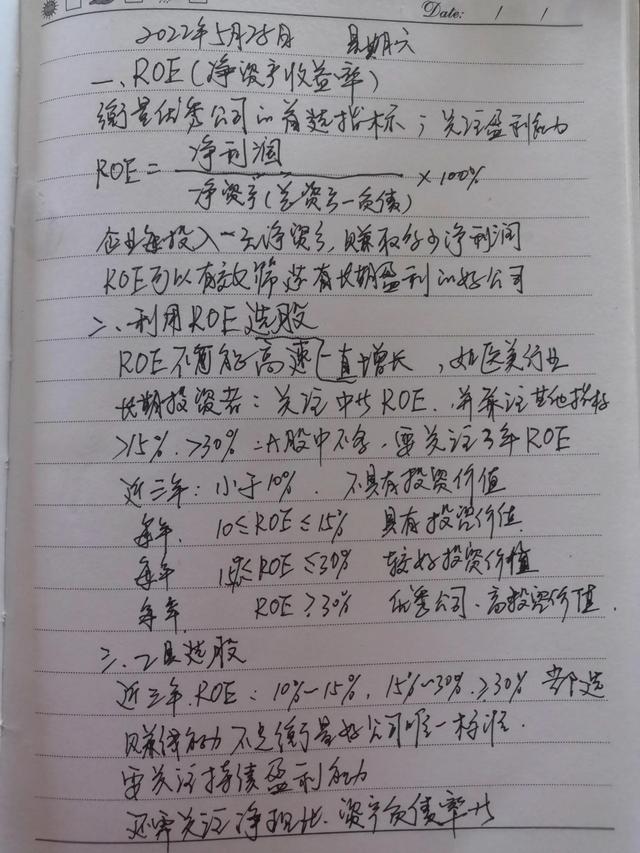 Date: / /
2022年5月28日 星期六
一、ROE(净资产收益率)
衡量优秀公司的首选指标;关注盈利能力
ROE = 净利润
净资产(总资产-负债) ×100%
企业每投入一元净资产,赚取多少净利润
ROE可以有效筛选有长期盈利的好公司
二、利用ROE选股
ROE不可能高速一直增长,如医美行业
长期投资者:关注中长ROE、并兼注其他指标
>15%、>30% A股中不多,要关注3年ROE
近三年:小于10%、不具有投资价值
每年、10≤ROE≤15% 具有投资价值
每年 15≤ROE≤30% 较好投资价值
每年 ROE≥30% 优秀公司、高投资价值.
三、工具选股
近三年.ROE:10%-15%,15%-30%,≥30% 选
赚钱能力不是衡量好公司唯一标准.
要关注持续盈利能力
还需关注净担比、资产负债率